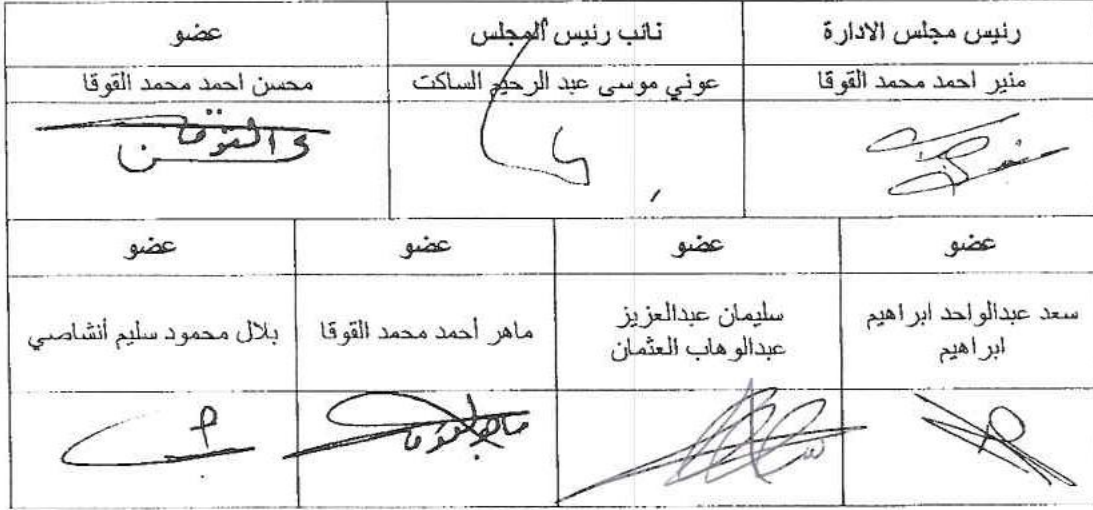 رئيس مجلس الادارة
نائب رئيس المجلس
عضو
منير احمد محمد القوقا
عوني موسى عبد الرحيم الساكت
محسن احمد محمد القوقا
عضو
عضو
عضو
عضو
سعد عبدالواحد ابراهيم
ابراهيم
سليمان عبدالعزيز
عبدالوهاب العثمان
ماهر أحمد محمد القوقا
بلال محمود سليم أنشاصي